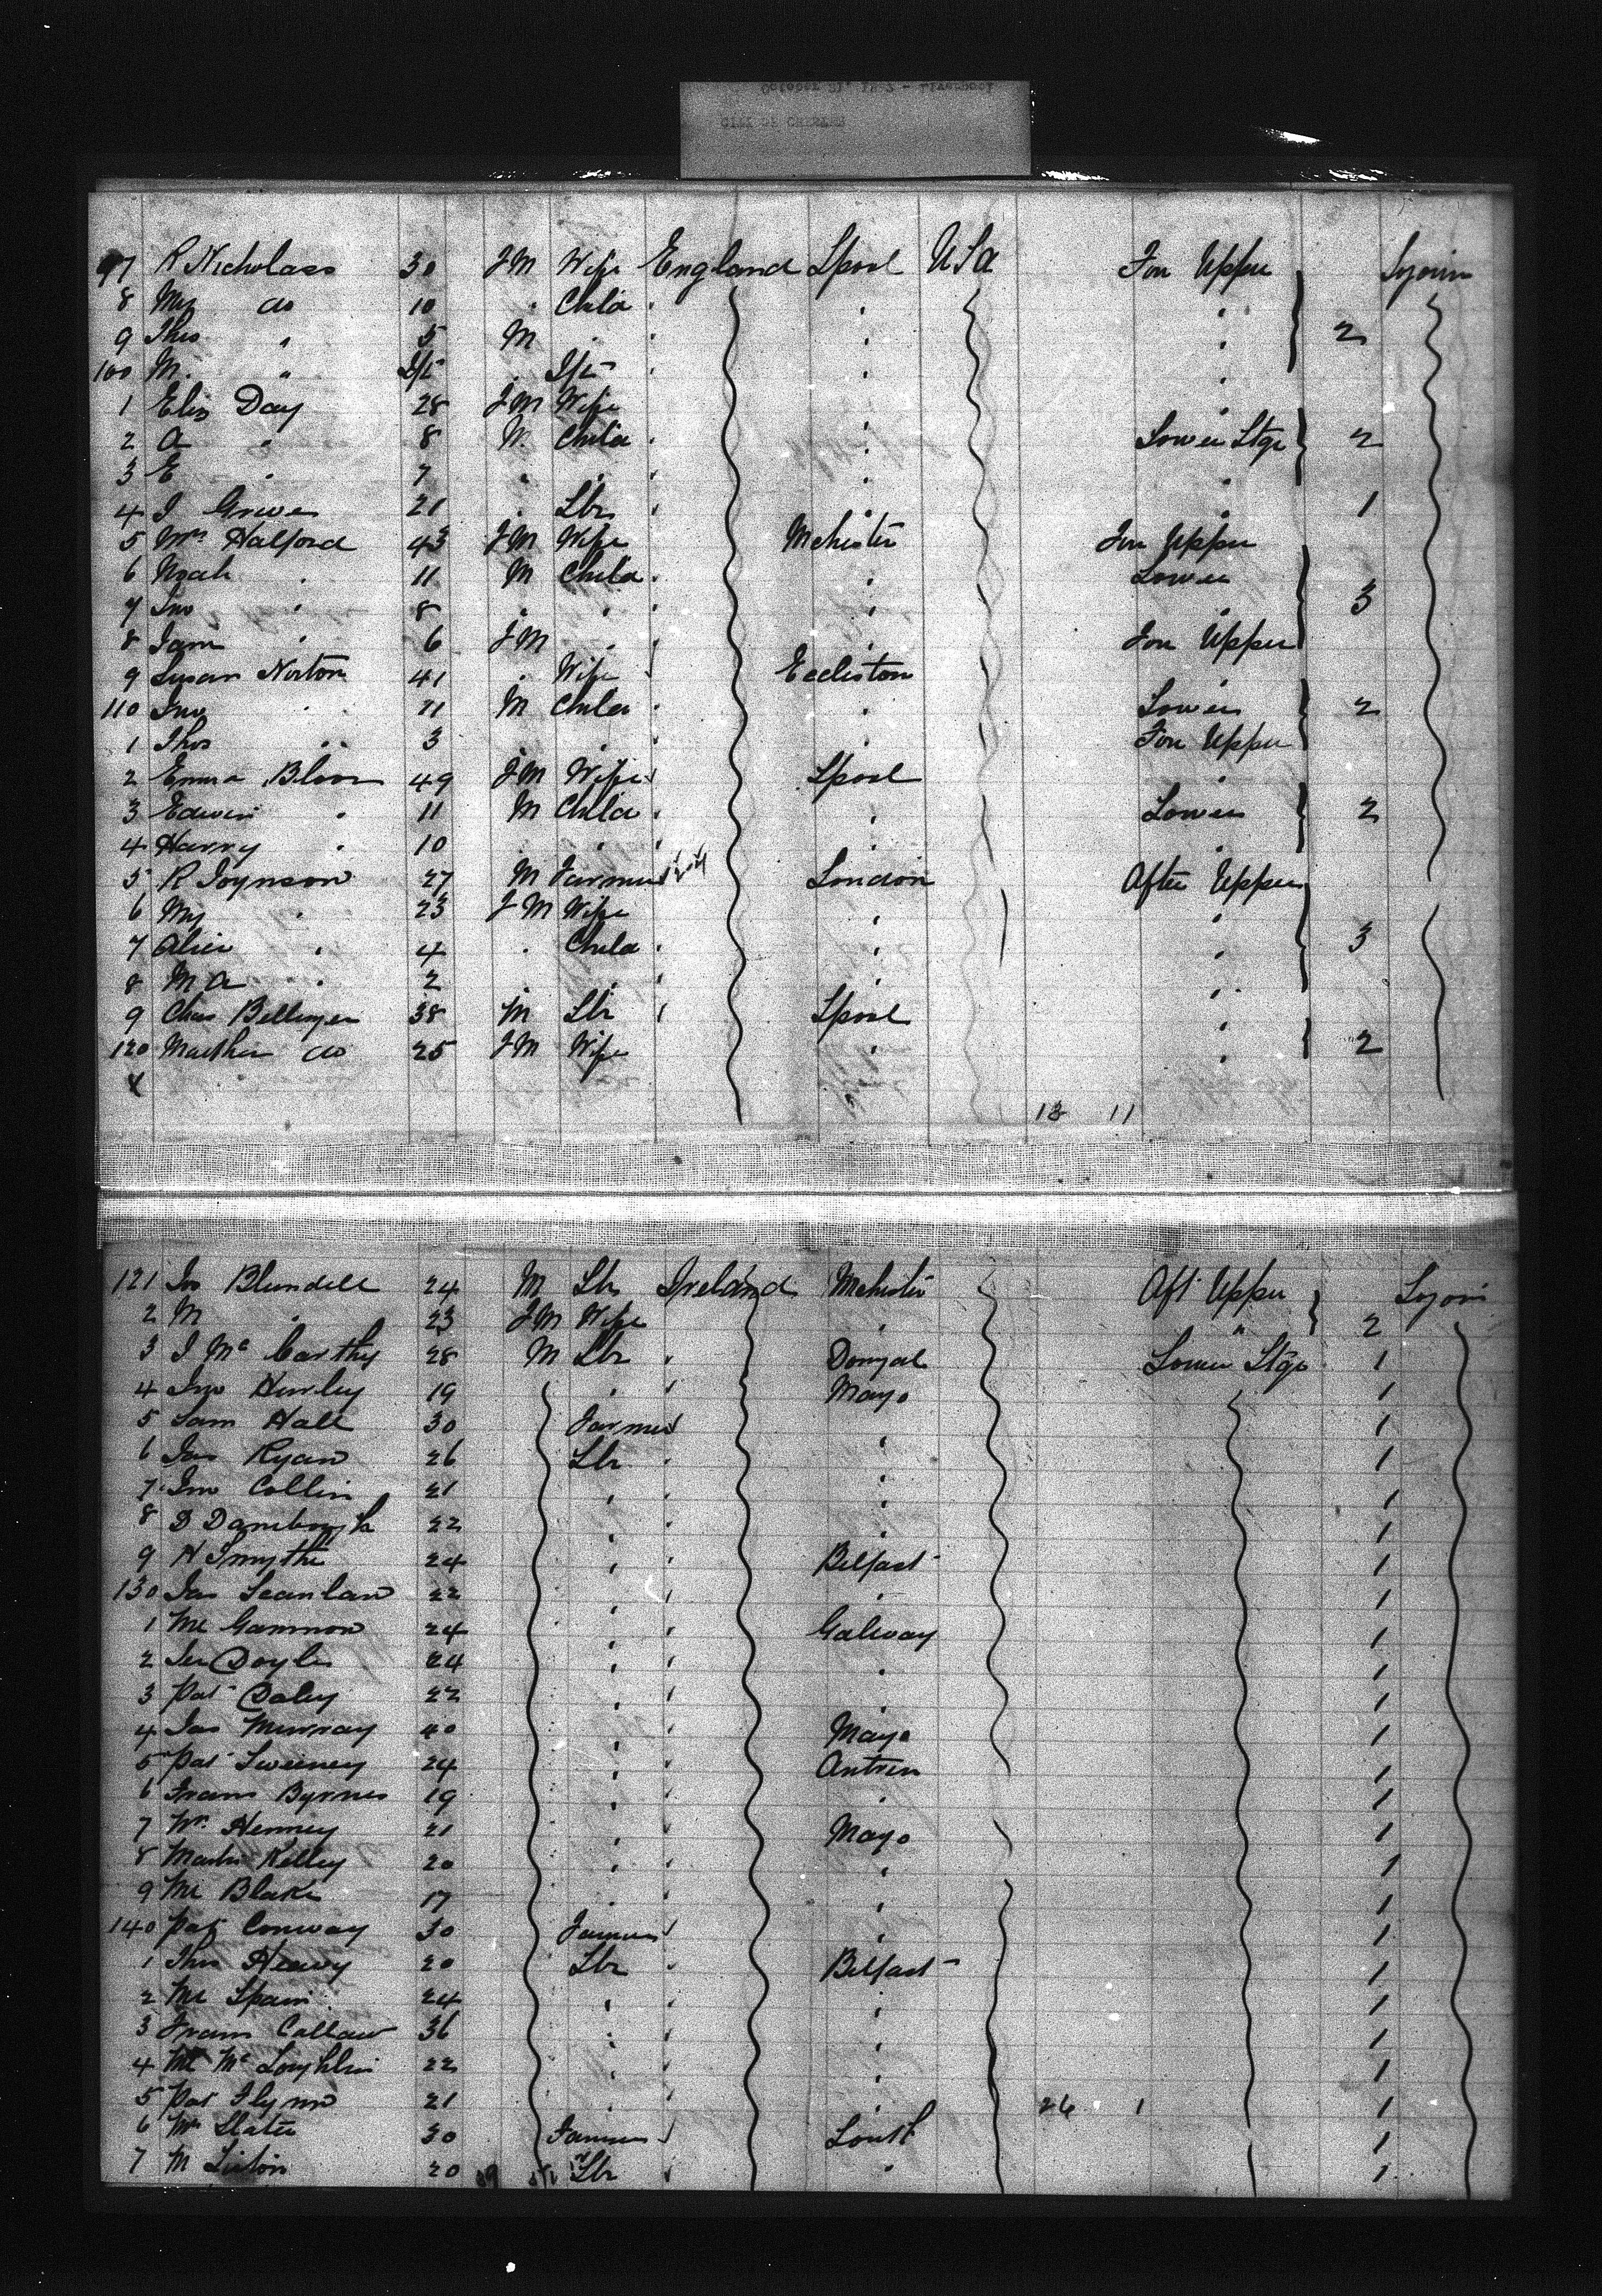 October 21, 1882 - Liverpool
CITY OF CHESTER
97 R Nicholass 30 FM Wife England Lpool USA For Upper Sojourn
8 My do 10 " Child " " "
9 Thos " 5 M " " " " 2
100 M. " Inft " Inft " " "
1 Eliz Day 28 FM Wife " "
2 A " 8 M Child " " Lower Stge 2
3 E " 7 " " " " "
4 J 21 " Lbr " " " 1
5 Mrs Halford 43 FM Wife Mchester For Upper
6 Noah " 11 M Child " " Lower
7 Jno " 8 " " " " " 3
8 Jam " 6 FM " " " For Upper
9 Susan Norton 41 " Wife Eccleston "
110 Jno " 11 M Child " " Lower 2
1 Thos " 3 " " " " For Upper
2 Emma Bloor 49 FM Wife Lpool "
3 Edwin " 11 M Child " " Lower 2
4 Harry " 10 " " " " "
5 R Joynson 27 M Farmer London After Upper
6 My " 23 FM Wife " "
7 Alice " 4 " Child " " " 3
8 M A " 2 " " " " "
9 Chas Bellinger 38 M Lbr " Lpool "
120 Marther do 25 FM Wife " " 2
13 11
121 Jos Blundell 24 M Lbr Ireland Mchester Aft Upper Sojourn
2 M " 23 FM Wife " " 2
3 J McCarthy 28 M Lbr " Donegal Lower Stge 1
4 Jno Hurley 19 " " Mayo 1
5 Sam Hall 30 Farmer " 1
6 Jas Ryan 26 Lbr " " 1
7 Jno Collin 21 " " " 1
8 D 22 " " " 1
9 H Smythe 24 " " Belfast 1
130 Jas Scanlan 22 " " " 1
1 Ml Gammon 24 " " Galway 1
2 Doyle 24 " " " 1
3 Pat Daley 22 " " " 1
4 Jas Murray 40 " " Mayo 1
5 Pat Sweeney 24 " " Antrim 1
6 Frans Byrnes 19 " " " 1
7 Wm Henney 21 " " Mayo 1
8 Martin Kelley 20 " " " 1
9 Ml Blake 17 " " " 1
140 Pat Conway 30 Farmer " 1
1 Thos Heavy 20 Lbr " Belfast 1
2 Ml Spain 24 " " " 1
3 Frans Callaw 36 " " " 1
4 Ml McLoughlin 22 " " " 1
5 Pat Flynn 21 " " " 26 1 1
6 Slater 30 Farmer Louth 1
7 M 20 Lbr " " 1